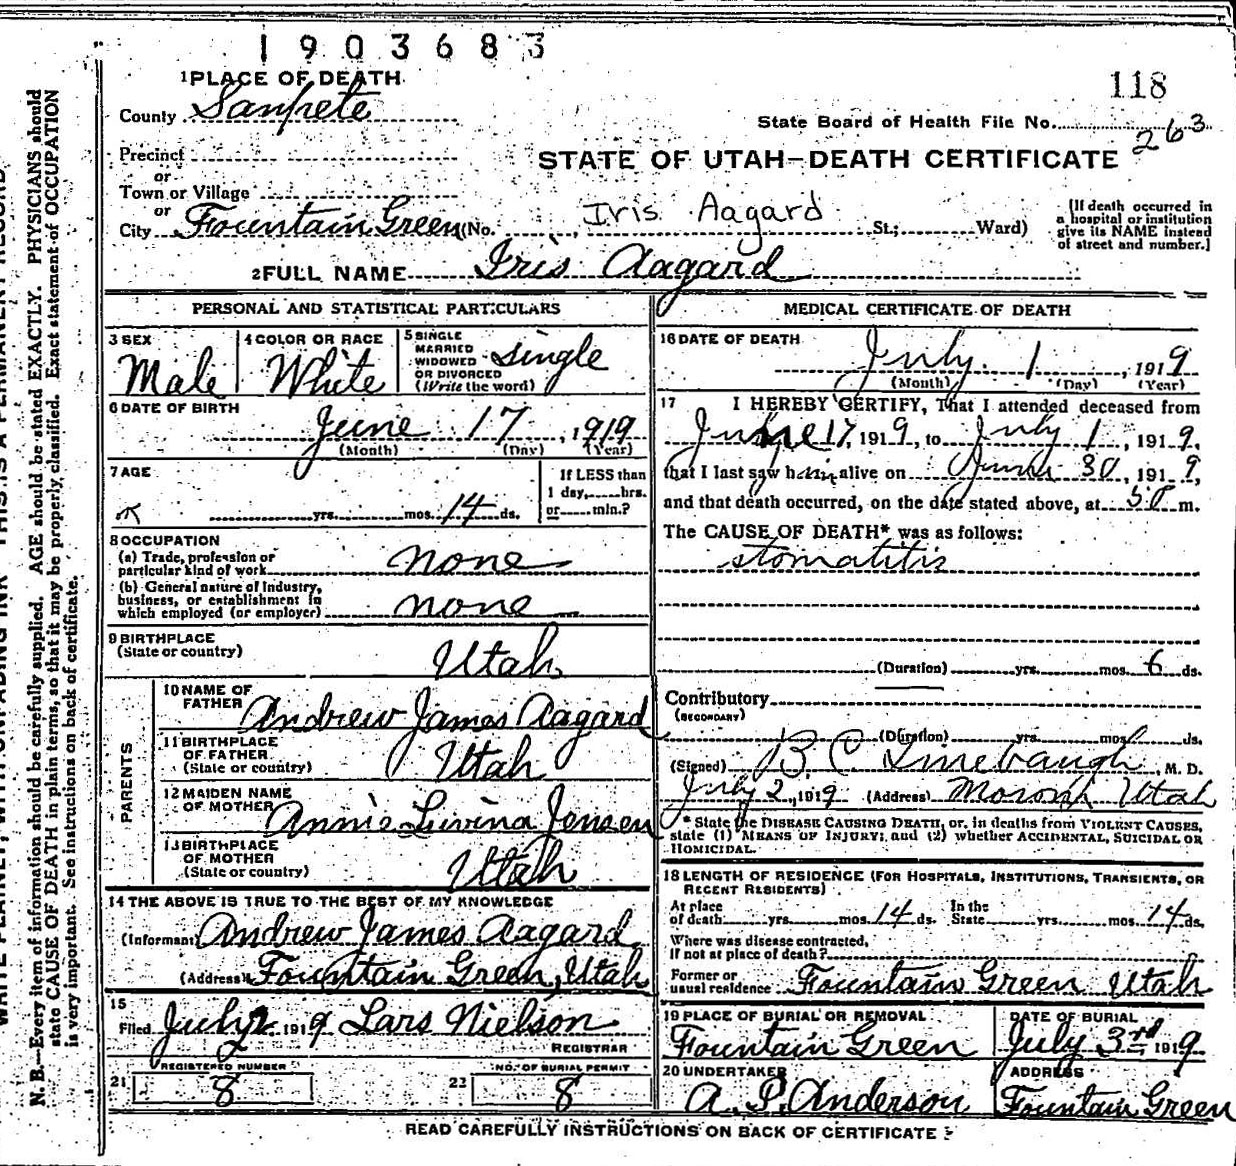 1903683
118
1 PLACE OF DEATH
County Sanpete
State Board of Health File No. 263
Precinct
or
Town or Village
or
STATE OF UTAH—DEATH CERTIFICATE
City Fountain Green (No. Iris Aagard St.; Ward)
[If death occurred in a hospital or institution give its NAME instead of street and number.]
2 FULL NAME Iris Aagard
PERSONAL AND STATISTICAL PARTICULARS
3 SEX
Male
4 COLOR OR RACE
White
5 SINGLE
MARRIED
WIDOWED
OR DIVORCED
(Write the word)
single
6 DATE OF BIRTH
June 17, 1919
(Month) (Day) (Year)
7 AGE
yrs. mos. 14 ds.
If LESS than
1 day, hrs.
or min.?
8 OCCUPATION
(a) Trade, profession or
particular kind of work none
(b) General nature of industry,
business, or establishment in
which employed (or employer) none
9 BIRTHPLACE
(State or country)
Utah
PARENTS
10 NAME OF
FATHER Andrew James Aagard
11 BIRTHPLACE
OF FATHER
(State or country) Utah
12 MAIDEN NAME
OF MOTHER Annis Luvina Jensen
13 BIRTHPLACE
OF MOTHER
(State or country) Utah
14 THE ABOVE IS TRUE TO THE BEST OF MY KNOWLEDGE
(Informant) Andrew James Aagard
(Address) Fountain Green, Utah
15
Filed July 2 1919 Lars Nielson
REGISTRAR
REGISTERED NUMBER
21 8
NO. OF BURIAL PERMIT
22 8
MEDICAL CERTIFICATE OF DEATH
16 DATE OF DEATH
July 1, 1919
(Month) (Day) (Year)
17 I HEREBY CERTIFY, That I attended deceased from
June 17, 1919, to July 1, 1919,
that I last saw him alive on June 30, 1919,
and that death occurred, on the date stated above, at m.
The CAUSE OF DEATH* was as follows:
stomatitis
(Duration) yrs. mos. 6 ds.
Contributory
(SECONDARY)
(Duration) yrs. mos. ds.
(Signed) B. C. Linebaugh, M. D.
July 2, 1919 (Address) Moroni Utah
* State the DISEASE CAUSING DEATH, or, in deaths from VIOLENT CAUSES,
state (1) MEANS OF INJURY; and (2) whether ACCIDENTAL, SUICIDAL OR
HOMICIDAL.
18 LENGTH OF RESIDENCE (FOR HOSPITALS, INSTITUTIONS, TRANSIENTS, OR
RECENT RESIDENTS)
At place
of death yrs. mos. 14 ds.
In the
State yrs. mos. 14 ds.
Where was disease contracted,
If not at place of death?
Former or
usual residence Fountain Green Utah
19 PLACE OF BURIAL OR REMOVAL
Fountain Green
DATE OF BURIAL
July 3rd 1919
20 UNDERTAKER
A. P. Anderson
ADDRESS
Fountain Green
READ CAREFULLY INSTRUCTIONS ON BACK OF CERTIFICATE
N. B.—Every item of information should be carefully supplied. AGE should be stated EXACTLY. PHYSICIANS should
state CAUSE OF DEATH in plain terms, so that it may be properly classified. Exact statement of OCCUPATION
is very important. See instructions on back of certificate.